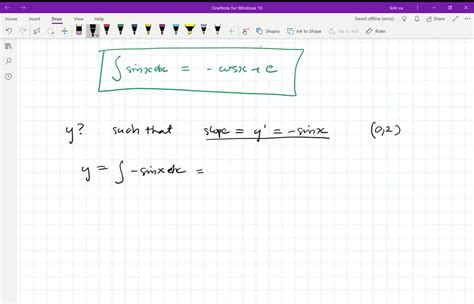 OneNote for Windows 10
linh vu
Home Insert Draw View Help
Saved offline (error) Share
Shapes Ink to Shape Ink to Text Math
∫ sinx dx = - cosx + c
y? such that slope = y' = -sinx (0,2)
y = ∫ -sinx dx =